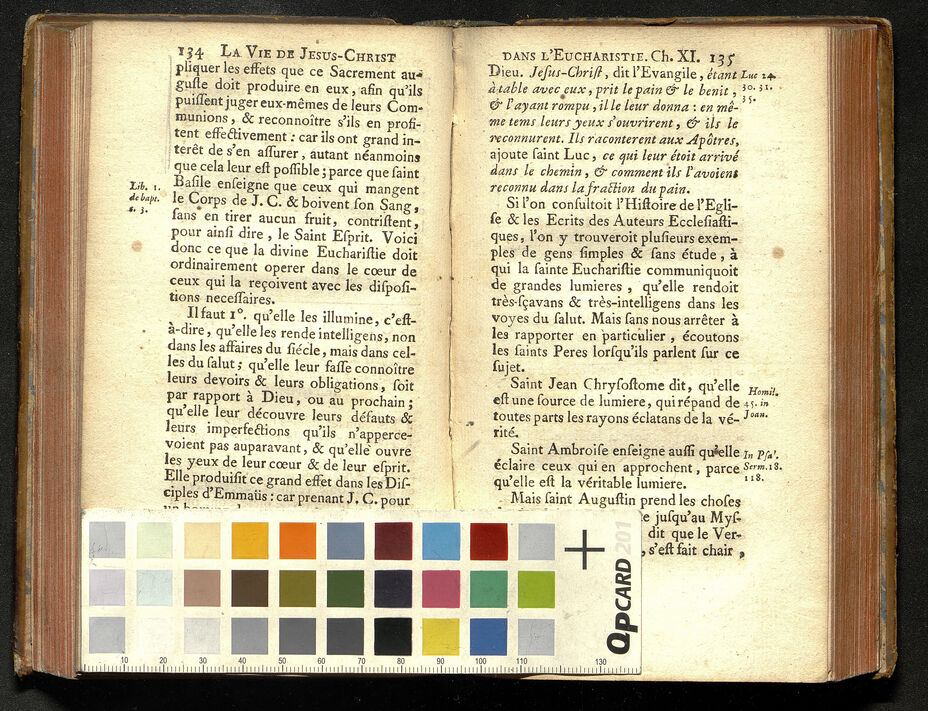 134 LA VIE DE JESUS-CHRIST
pliquer les effets que ce Sacrement au-
guſte doit produire en eux, afin qu'ils
puiſſent juger eux-mêmes de leurs Com-
munions, & reconnoître s'ils en profi-
tent effectivement : car ils ont grand in-
terêt de s'en aſſurer, autant néanmoins
que cela leur eſt poſſible ; parce que ſaint
Baſile enſeigne que ceux qui mangent
le Corps de J. C. & boivent ſon Sang,
ſans en tirer aucun fruit, contriſtent,
pour ainſi dire, le Saint Eſprit. Voici
donc ce que la divine Euchariſtie doit
ordinairement operer dans le cœur de
ceux qui la reçoivent avec les diſpoſi-
tions neceſſaires.
Il faut 1°. qu'elle les illumine, c'eſt-
à-dire, qu'elle les rende intelligens, non
dans les affaires du ſiécle, mais dans cel-
les du ſalut ; qu'elle leur faſſe connoître
leurs devoirs & leurs obligations, ſoit
par rapport à Dieu, ou au prochain ;
qu'elle leur découvre leurs défauts &
leurs imperfections qu'ils n'apperce-
voient pas auparavant, & qu'elle ouvre
les yeux de leur cœur & de leur eſprit.
Elle produiſit ce grand effet dans les Diſ-
ciples d'Emmaüs : car prenant J. C. pour
Lib. 1.
de bapt.
c. 3.
DANS L'EUCHARISTIE. Ch. XI. 135
Dieu. Jeſus-Chriſt, dit l'Evangile, étant
à table avec eux, prit le pain & le benit,
& l'ayant rompu, il le leur donna : en mê-
me tems leurs yeux s'ouvrirent, & ils le
reconnurent. Ils raconterent aux Apôtres,
ajoute ſaint Luc, ce qui leur étoit arrivé
dans le chemin, & comment ils l'avoient
reconnu dans la fraction du pain.
Si l'on conſultoit l'Hiſtoire de l'Egli-
ſe & les Ecrits des Auteurs Eccleſiaſti-
ques, l'on y trouveroit pluſieurs exem-
ples de gens ſimples & ſans étude, à
qui la ſainte Euchariſtie communiquoit
de grandes lumieres, qu'elle rendoit
très-ſçavans & très-intelligens dans les
voyes du ſalut. Mais ſans nous arrêter à
les rapporter en particulier, écoutons
les ſaints Peres lorſqu'ils parlent ſur ce
ſujet.
Saint Jean Chryſoſtome dit, qu'elle
eſt une ſource de lumiere, qui répand de
toutes parts les rayons éclatans de la vé-
rité.
Saint Ambroiſe enſeigne auſſi qu'elle
éclaire ceux qui en approchent, parce
qu'elle eſt la véritable lumiere.
Mais ſaint Auguſtin prend les choſes
juſqu'au Myſ-
dit que le Ver-
, s'eſt fait chair,
Luc 24.
30. 31.
35.
Homil.
45. in
Joan.
In Pſa'.
Serm. 18.
118.
QPCARD 201
10 20 30 40 50 60 70 80 90 100 110 130